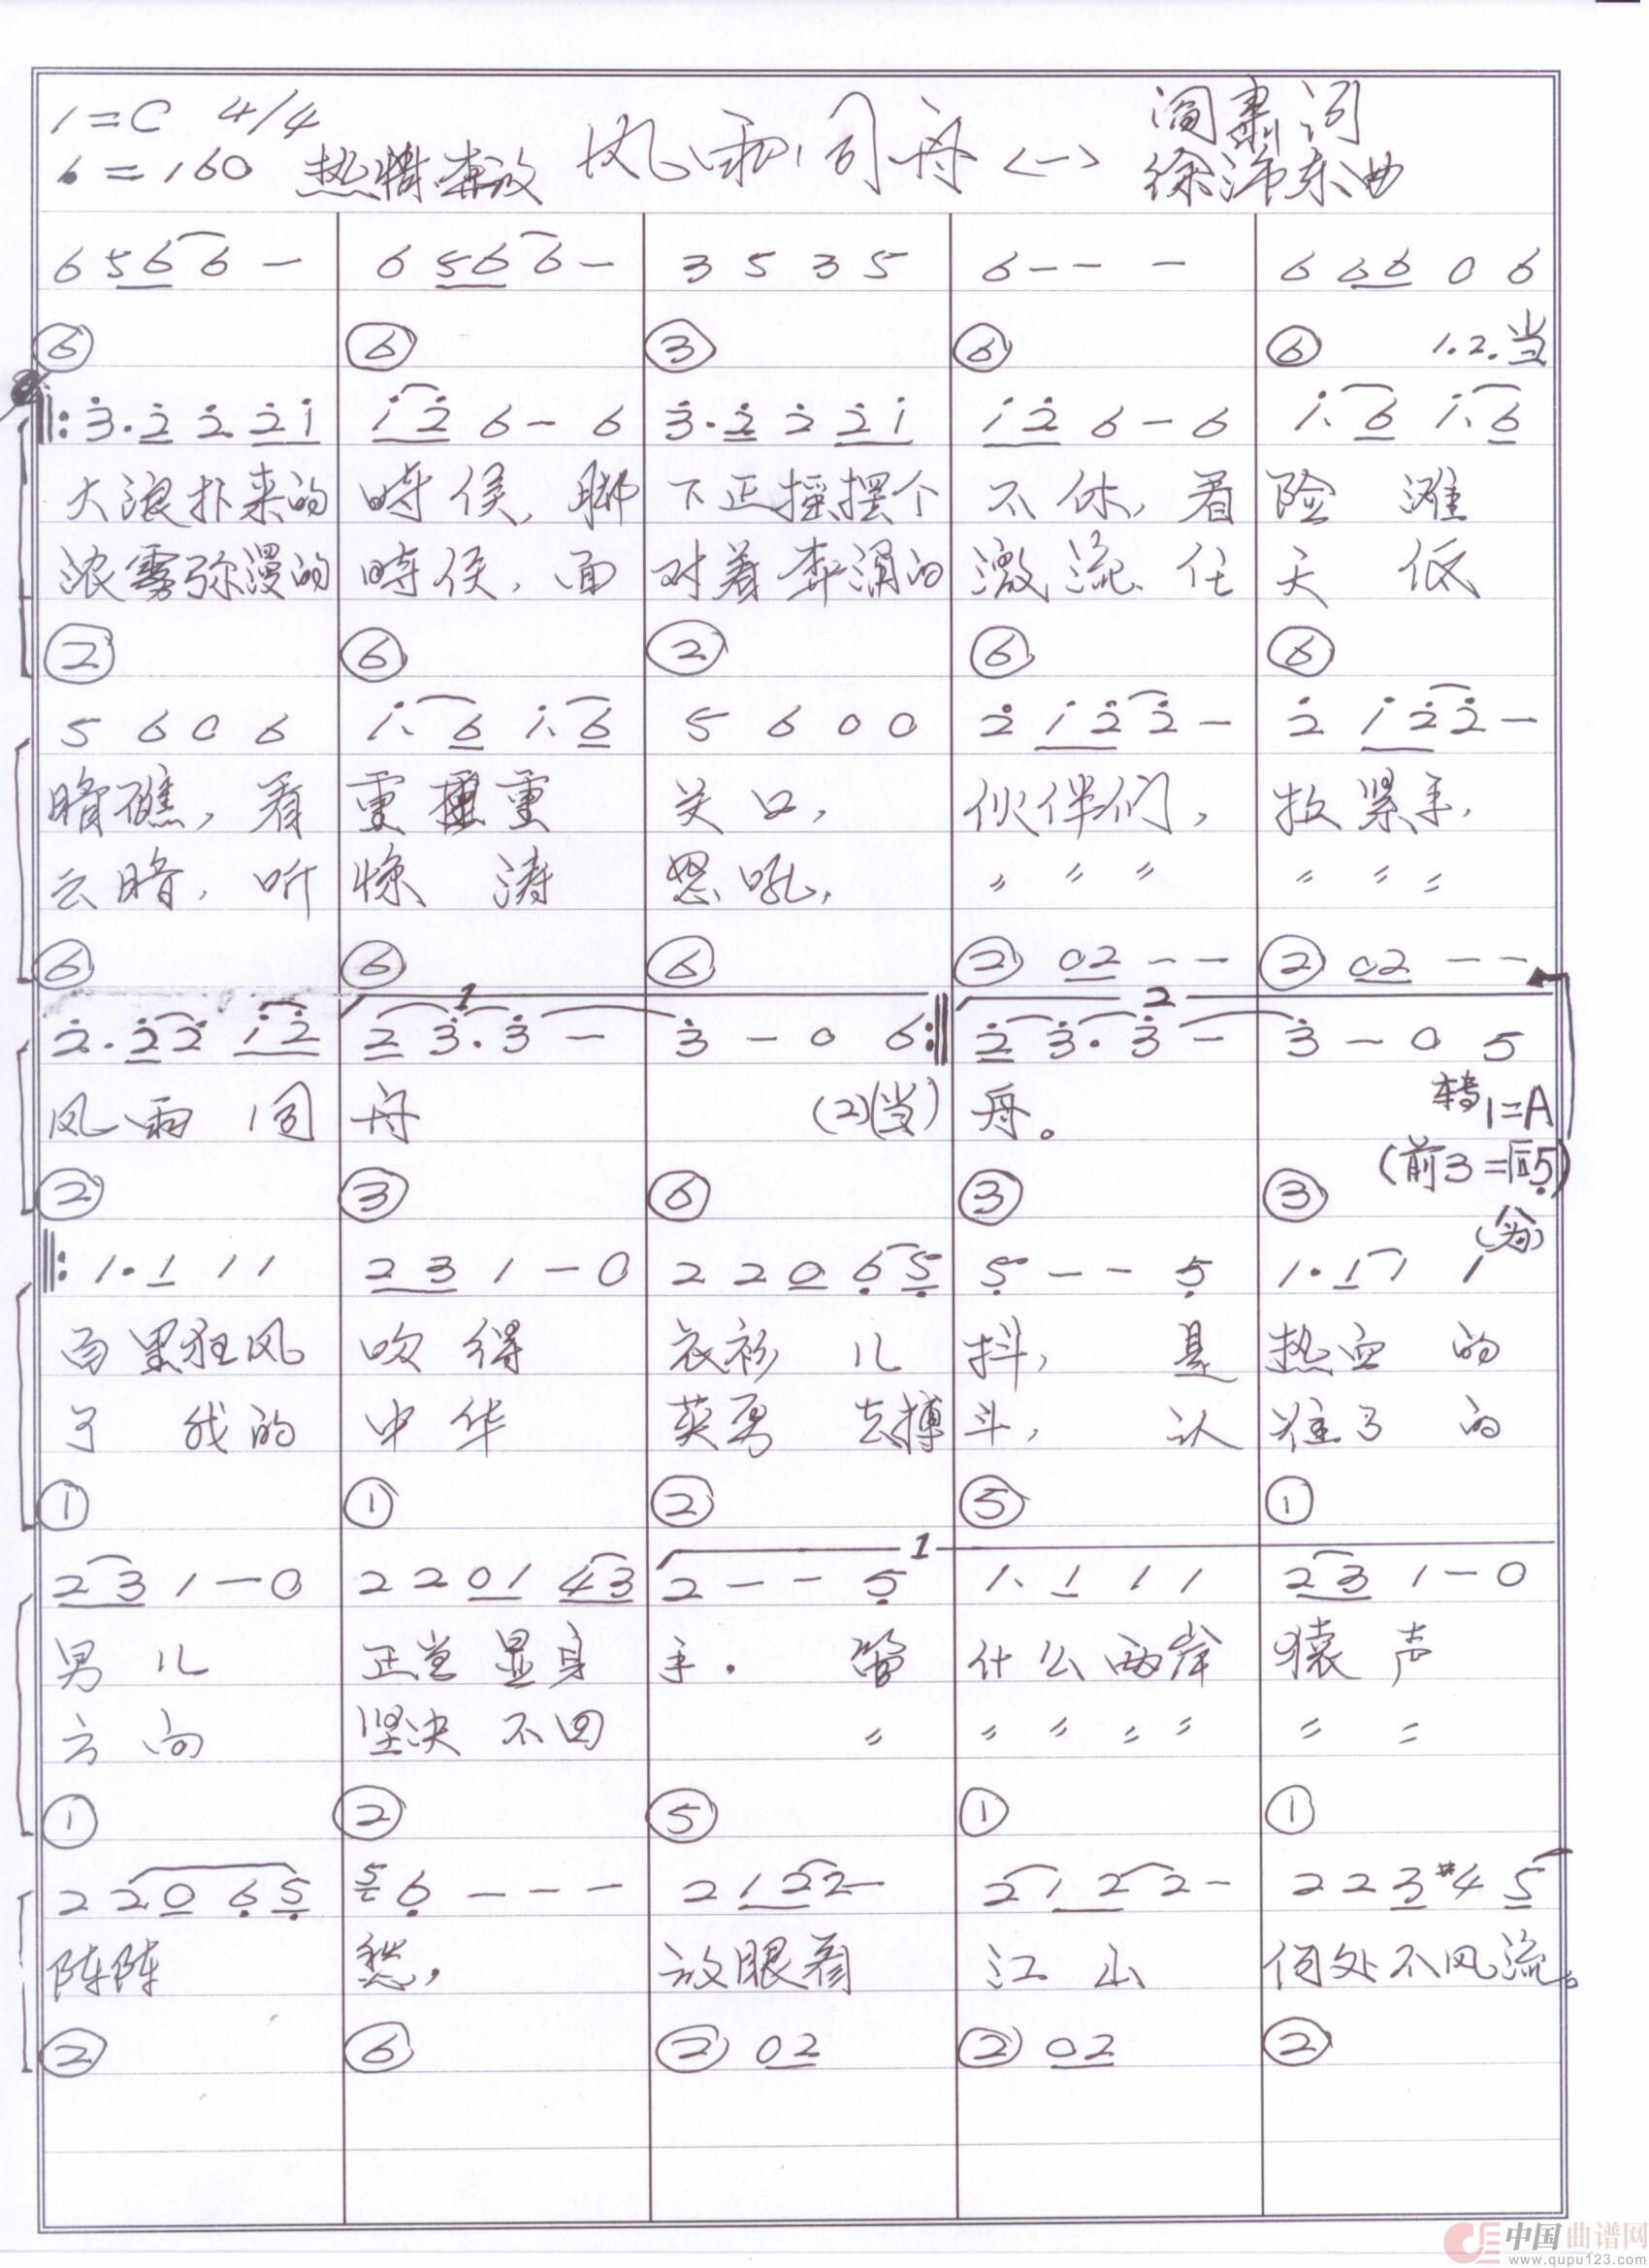 1=C 4/4 阎肃词
♩=160 热情奔放 风雨同舟<一> 徐沛东曲
6 5 6 6 — 6 5 6 6 — 3 5 3 5 6 - - - 6 6 6 0 6
⑥ ⑥ ③ ⑥ ⑥ 1.2.当
‖: 3̇. 2̇ 2̇ 2̇ 1̇ 1̇ 2̇ 6 — 6 3̇. 2̇ 2̇ 2̇ 1̇ 1̇ 2̇ 6 — 6 1̇. 6 1̇. 6
大浪扑来的 時侯, 脚 下正摇摆个 不休, 看 险 滩
浓雾弥漫的 時侯, 面 对着奔涌的 激流 任 天 低
② ⑥ ② ⑥ ⑥
5 6 0 6 1̇. 6 1̇. 6 5 6 0 0 2̇ 1̇ 2̇ 2̇ — 2̇ 1̇ 2̇ 2̇ —
暗礁, 看 重重重 关口, 伙伴们, 扳紧手,
云暗, 听 惊 涛 怒吼, 〃 〃 〃 〃 〃 〃
⑥ ⑥ ⑥ ② 0 2 - - ② 0 2 - -
1 2
2̇. 2̇ 2̇ 1̇ 2̇ 2̇ 3̇. 3̇ — 3̇ — 0 6 :‖ 2̇ 3̇. 3̇ — 3̇ — 0 5
风雨 同 舟 (2)(当) 舟。 转1=A
② ③ ⑥ ③ ③ (前3=后5̣)
(为)
‖: 1. 1 1 1 2 3 1 — 0 2 2 0 6̣ 5̣ 5̣ - - 5̣ 1. 1 1 1
百里狂风 吹得 衣衫 儿 抖, 是 热血 的
了 我的 中华 英勇 去搏 斗, 认 准了 的
① ① ② ⑤ ①
1
2 3 1 — 0 2 2 0 1 4 3 2 - - 5̣ 1. 1 1 1 2 3 1 — 0
男儿 正当 显身 手. 管 什么两岸 猿声
方向 坚决 不回 〃 〃 〃 〃 〃 〃 〃
① ② ⑤ ① ①
2 2 0 6̣ 5̣ 5 6̣ - - - 2 1 2 2 — 2 1 2 2 — 2 2 3 #4 5
阵阵 愁, 放眼看 江山 何处不风流。
② ⑥ ② 0 2 ② 0 2 ②
中国曲谱网
www.qupu123.com